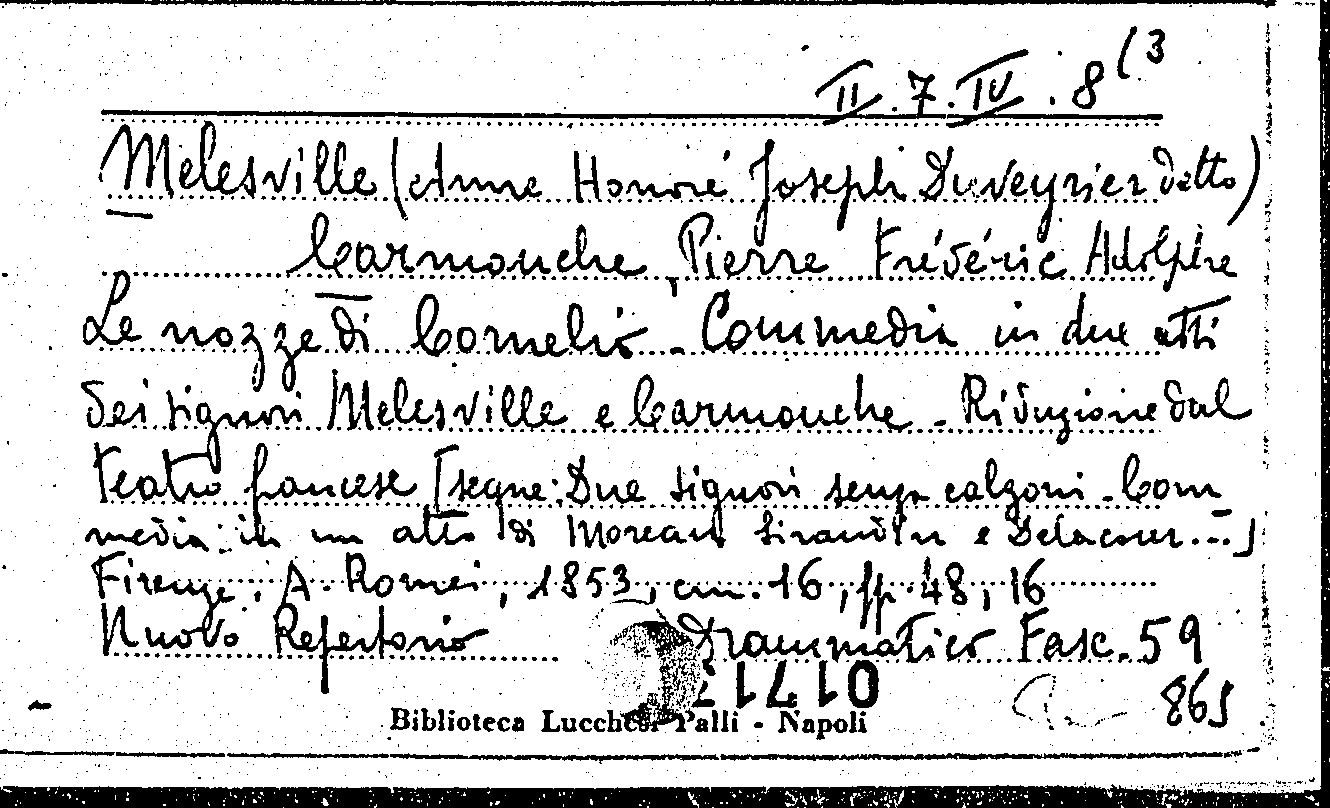 II.7.IV.8(3
Melesville (Anne Honoré Joseph Duveyrier detto)
Carmouche, Pierre Frédéric Adolphe
Le nozze di Cornelio - Commedia in due atti
dei signori Melesville e Carmouche - Riduzione dal
teatro francese [segue: Due signori senza calzoni - Com
media in un atto di Moreau Siraudin e Delacour...]
Firenze, A. Romei, 1853, cm. 16, pp. 48, 16
Nuovo Repertorio Drammatico Fasc. 59
01717
865
Biblioteca Lucchesi Palli - Napoli